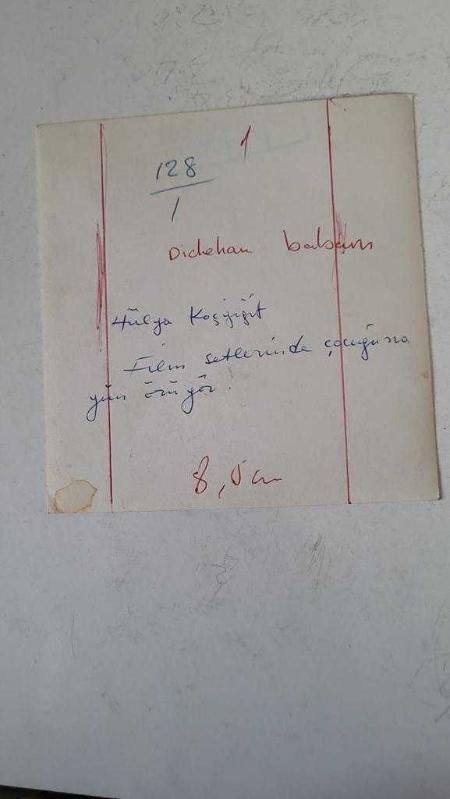 1
128
1
Dichehan babam
Hülya Koçyiğit
Film setlerinde çocuğuna
yün örüyor.
8,5 cm